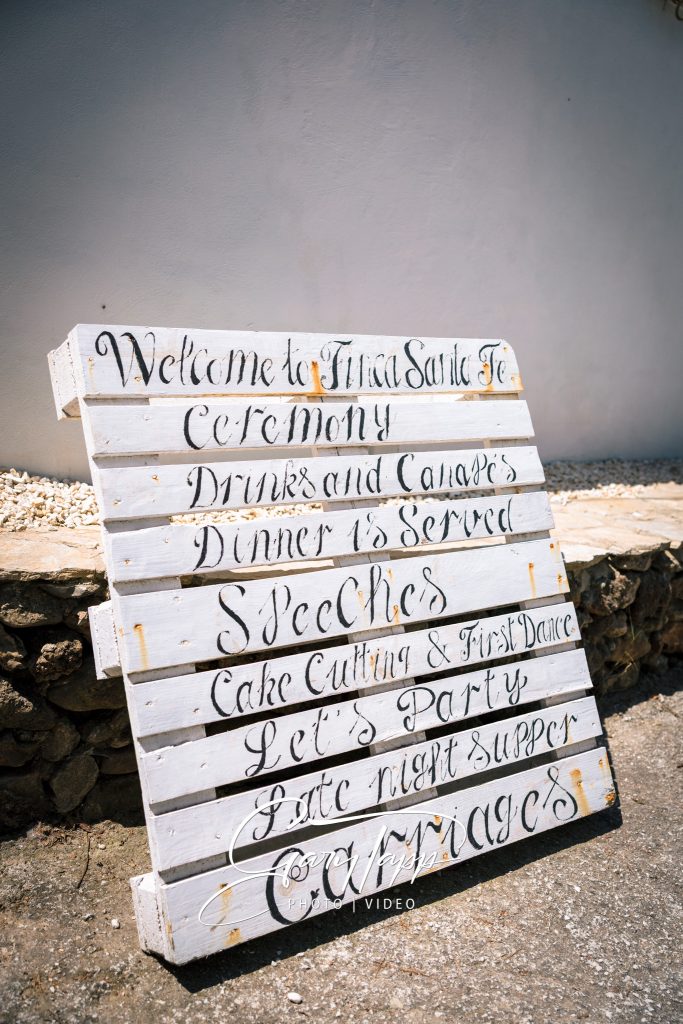 Welcome to Finca Santa Fe
Ceremony
Drinks and Canapés
Dinner is Served
Speeches
Cake Cutting & First Dance
Let's Party
Late night supper
Carriages
Gary Tapp
PHOTO | VIDEO